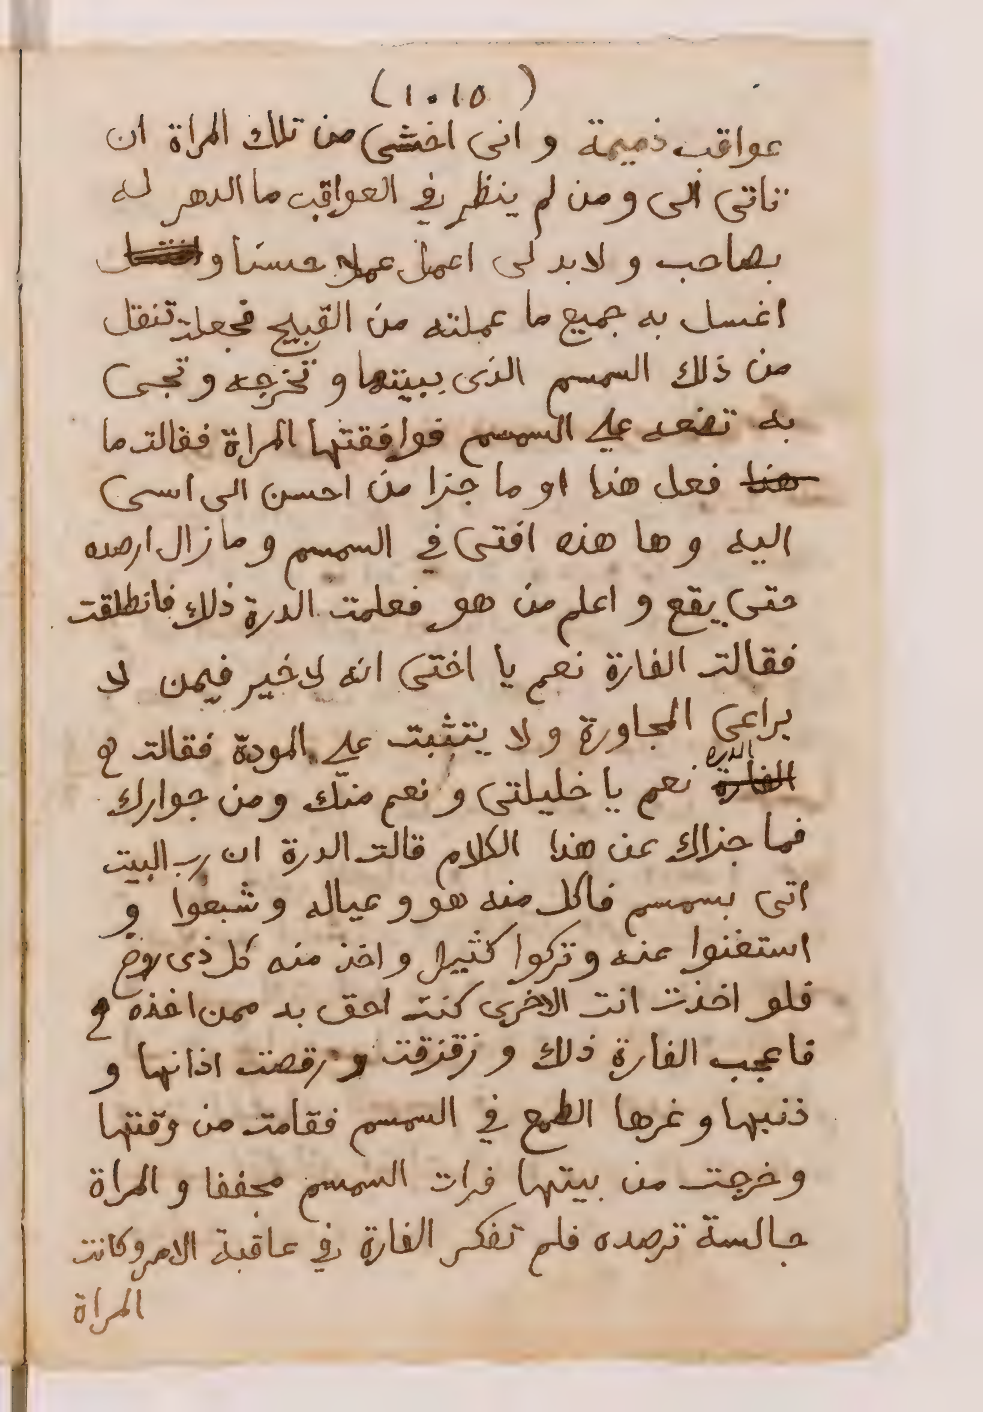 (١٠١٥)
عواقب ذميمة و انى اخشى من تلك المراة ان
تاتى الى و من لم ينظر في العواقب ما الدهر له
بصاحب و لا بد لى اعمل عملا حسنا و
اغسل به جميع ما عملته من القبيح فجعلت تنقل
من ذلك السمسم الذى ببيتها و تخرجه و تجى
به تضعه على السمسم فوافقتها المراة فقالت ما
هذا فعل هذا او ما جزا من احسن الى اسى
اليه و ها هذه افتى في السمسم و ما زال ارصده
حتى يقع و اعلم من هو فعلمت الدرة ذلك فانطلقت
فقالت الفارة نعم يا اختى انه لا خير فيمن لا
يراعى المجاورة و لا يتثبت على المودة فقالت
الفارة الدره نعم يا خليلتى و نعم منك و من جوارك
فما جزاك عن هذا الكلام قالت الدرة ان رب البيت
اتى بسمسم فاكل منه هو و عياله و شبعوا و
استغنوا عنه و تركوا كثيرا و اخذ منه كل ذى روح
فلو اخذت انت الاخرى كنت احق به ممن اخذه
فاعجب الفارة ذلك و زقزقت و رقصت اذانها و
ذنبها و غرها الطمع في السمسم فقامت من وقتها
و خرجت من بيتها فرات السمسم مجففا و المراة
جالسة ترصده فلم تفكر الفارة في عاقبة الامر و كانت
المراة